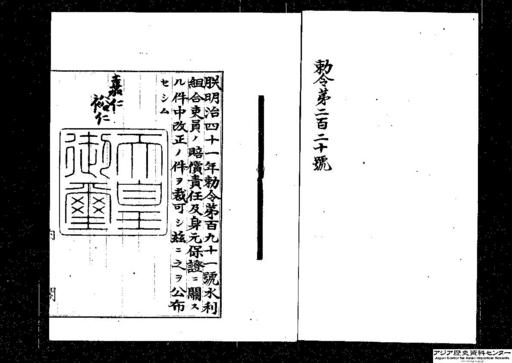 勅令第二百二十號
朕明治四十一年勅令第百九十一號水利
組合吏員ノ賠償責任及身元保證ニ關ス
ル件中改正ノ件ヲ裁可シ茲ニ之ヲ公布
セシム
嘉仁
裕仁
天皇
御璽
内 閣
アジア歴史資料センター
Japan Center for Asian Historical Records